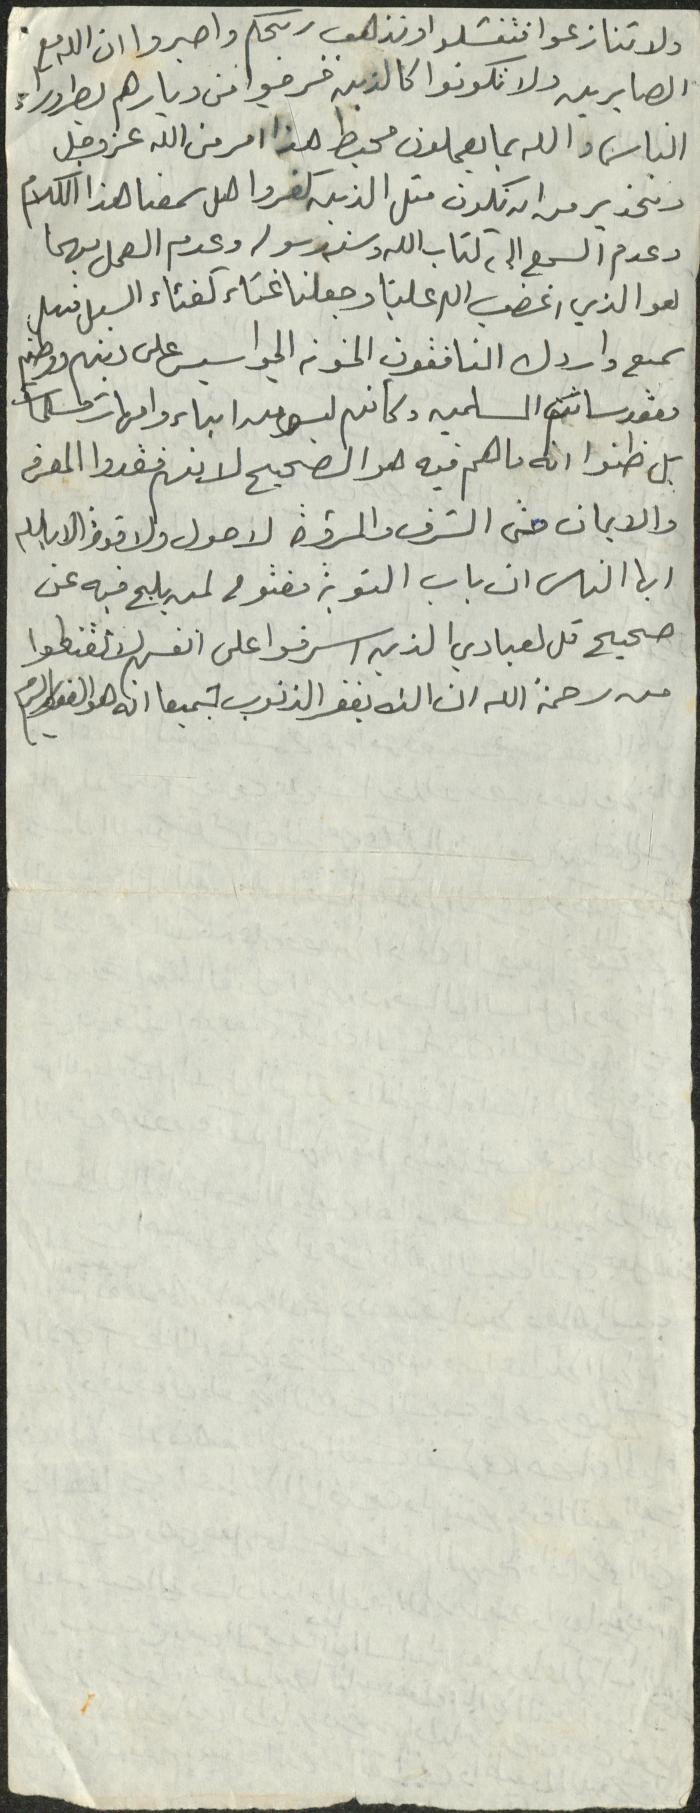 ولا تنازعوا فتفشلوا وتذهب ريحكم واصبروا ان الله مع
الصابرين ولا تكونوا كالذين خرجوا من ديارهم بطرا ورئاء
الناس والله بما يعملون محيط هذا امر من الله عز وجل
وتحذير من ان نكون مثل الذين كفروا هل سمعنا هذا الكلام
وعدم السمع الى كتاب الله وسنة رسوله وعدم العمل بهما
هو الذي اغضب الله علينا وجعلنا غثاء كغثاء السيل فهل
سمع وادرك المنافقون الخونه الجواسيس على دينهم ووطنهم
ومقدسات المسلمين وكأنهم ليسو من ابناء وامهات مسلمات
بل ظنوا انه ما هم فيه هو الصحيح لانهم فقدوا المعرفه
والايمان حتى الشرف والمروة لا حول ولا قوة الا بالله
ايها الناس ان باب التوبة مفتوح لمن يلج فيه عن
صحيح قل لعبادي الذين اسرفوا على انفسهم لا تقنطوا
من رحمة الله ان الله يغفر الذنوب جميعا انه هو الغفور الرحيم